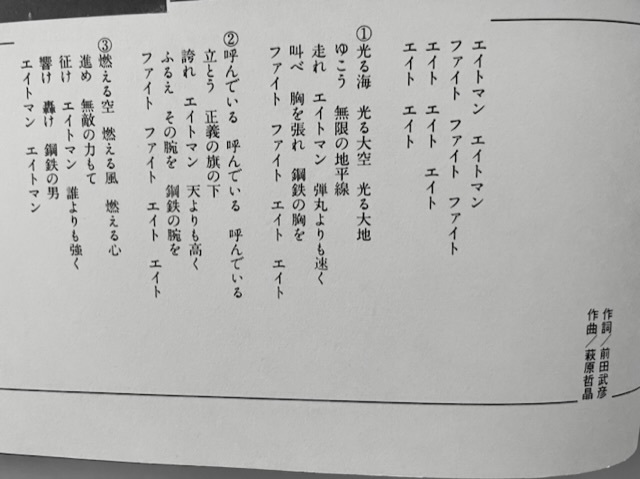 作詞／前田武彦
作曲／萩原哲晶
エイトマン エイトマン
ファイト ファイト ファイト
エイト エイト エイト
エイト エイト
①光る海 光る大空 光る大地
ゆこう 無限の地平線
走れ エイトマン 弾丸よりも速く
叫べ 胸を張れ 鋼鉄の胸を
ファイト ファイト エイト エイト
②呼んでいる 呼んでいる 呼んでいる
立とう 正義の旗の下
誇れ エイトマン 天よりも高く
ふるえ その腕を 鋼鉄の腕を
ファイト ファイト エイト エイト
③燃える空 燃える風 燃える心
進め 無敵の力もて
征け エイトマン 誰よりも強く
響け 轟け 鋼鉄の男
エイトマン エイトマン